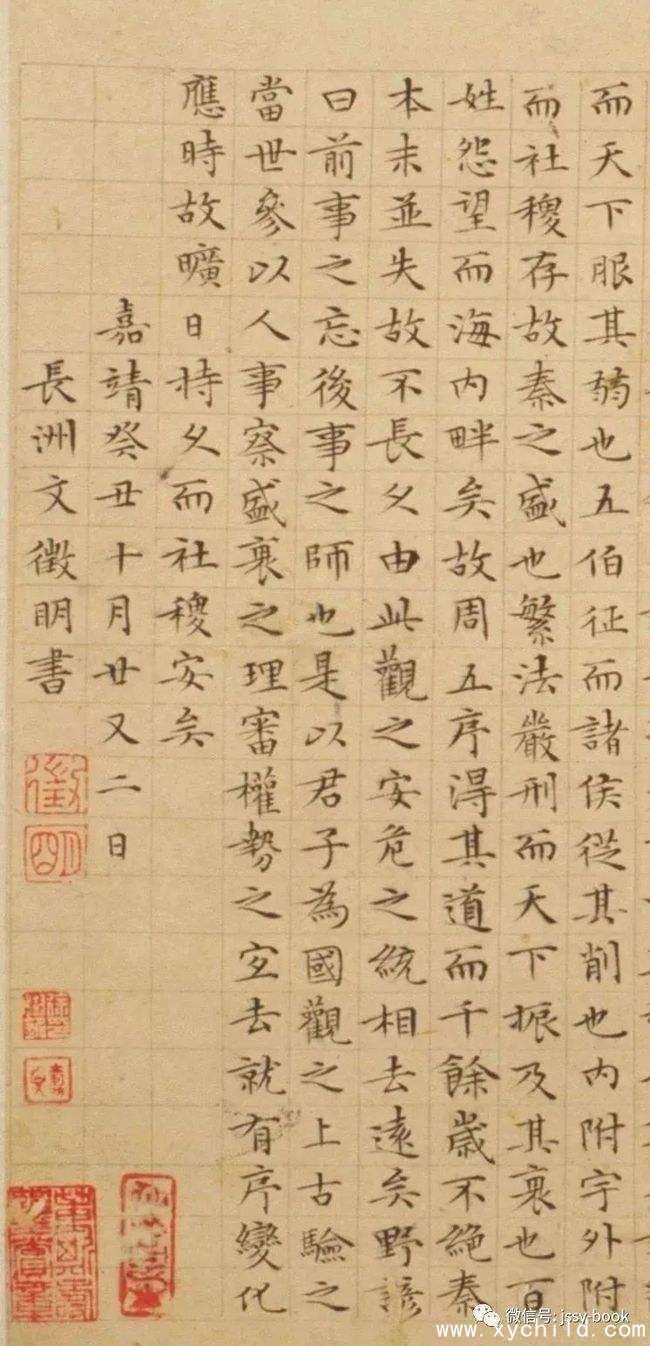 而天下服其弱也五伯征而諸侯從其削也内附守外附
而社稷存故秦之盛也繁法嚴刑而天下振及其衰也百
姓怨望而海内畔矣故周五序得其道而千餘歲不絶秦
本末並失故不長久由此觀之安危之統相去遠矣野諺
曰前事之忘後事之師也是以君子為國觀之上古驗之
當世參以人事察盛衰之理審權勢之宜去就有序變化
應時故曠日持久而社稷安矣
嘉靖癸丑十月廿又二日
長洲文徵明書
徵明
微信号: jssy-book
www.xychild.com